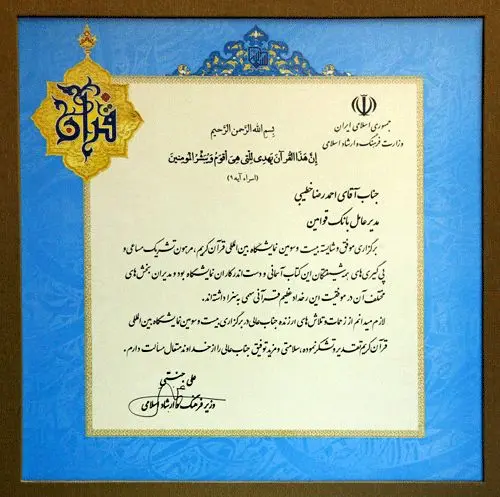 قرآن
جمهوری اسلامی ایران
وزارت فرهنگ و ارشاد اسلامی
بِسمِ اللهِ الرَّحمنِ الرَّحیمِ
اِنَّ هَذَا القُرآنَ یَهدِی لِلَّتِی هِیَ اَقوَمُ وَ یُبَشِّرُ المُؤمِنینَ
(اسراء آیه ۹)
جناب آقای احمد رضا خطیبی
مدیر عامل بانک قوامین
برگزاری موفق و شایسته بیست و سومین نمایشگاه بین المللی قرآن کریم، مرهون تشریک مساعی و
پی گیری های همه شیفتگان این کتاب آسمانی و دست اندرکاران نمایشگاه بود و مدیران بخش های
مختلف آن در موفقیت این رخداد عظیم قرآنی سعی به سزا داشته‌اند.
لازم میدانم از زحمات و تلاش های ارزنده جناب عالی در برگزاری بیست و سومین نمایشگاه بین المللی
قرآن کریم تقدیر و تشکر نموده، سلامتی و مزید توفیق جناب عالی را از خداوند متعال مسألت دارم.
علی جنتی
وزیر فرهنگ و ارشاد اسلامی